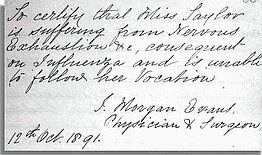 To certify that Miss Taylor
is suffering from Nervous
Exhaustion &c, consequent
on Influenza and is unable
to follow her Vocation
J. Morgan Evans.
Physician & Surgeon
12th Oct. 1891.